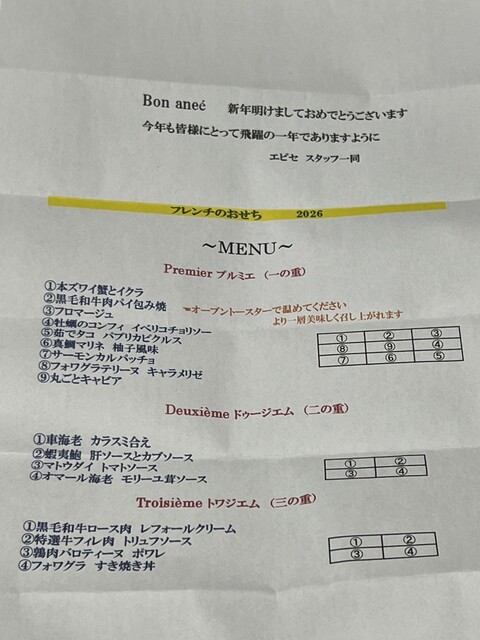 Bon aneé 新年明けましておめでとうございます
今年も皆様にとって飛躍の一年でありますように
エピセ スタッフ一同
フレンチのおせち 2026
～MENU～
Premier プルミエ （一の重）
①本ズワイ蟹とイクラ
②黒毛和牛肉パイ包み焼 ☜オーブントースターで温めてください
より一層美味しく召し上がれます
③フロマージュ
④牡蠣のコンフィ イベリコチョリソー
⑤茹でタコ パプリカピクルス
⑥真鯛マリネ 柚子風味
⑦サーモンカルパッチョ
⑧フォワグラテリーヌ キャラメリゼ
⑨丸ごとキャビア
① ② ③
⑧ ⑨ ④
⑦ ⑥ ⑤
Deuxième ドゥージエム （二の重）
①車海老 カラスミ合え
②蝦夷鮑 肝ソースとカブソース
③マトウダイ トマトソース
④オマール海老 モリーユ茸ソース
① ②
③ ④
Troisième トワジエム （三の重）
①黒毛和牛ロース肉 レフォールクリーム
②特選牛フィレ肉 トリュフソース
③鶉肉バロティーヌ ポワレ
④フォワグラ すき焼き丼
① ②
③ ④